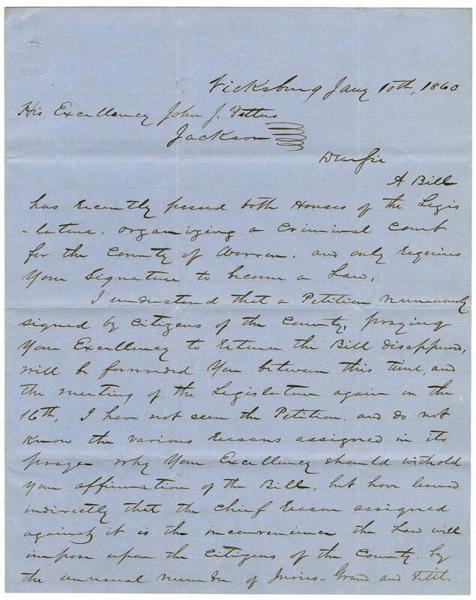 Vicksburg Jany 10th, 1860
His Excellency John J. Pettus
Jackson
Dear Sir
A Bill
has recently passed both Houses of the Legis
-lature, organizing a Criminal Court
for the County of Warren, and only requires
Your Signature to become a Law.
I understand that a Petition numerously
signed by Citizens of the County, praying
Your Excellency to return the Bill disapproved,
will be forwarded You between this time and
the meeting of the Legislature again on the
16th. I have not seen the Petition, and do not
know the various reasons assigned in its
prayer why Your Excellency should withold
Your affirmation of the Bill, but have learned
indirectly that the chief reason assigned
against it is the inconvenience the Law will
impose upon the Citizens of the County by
the unusual number of Juries - Grand and Petit.